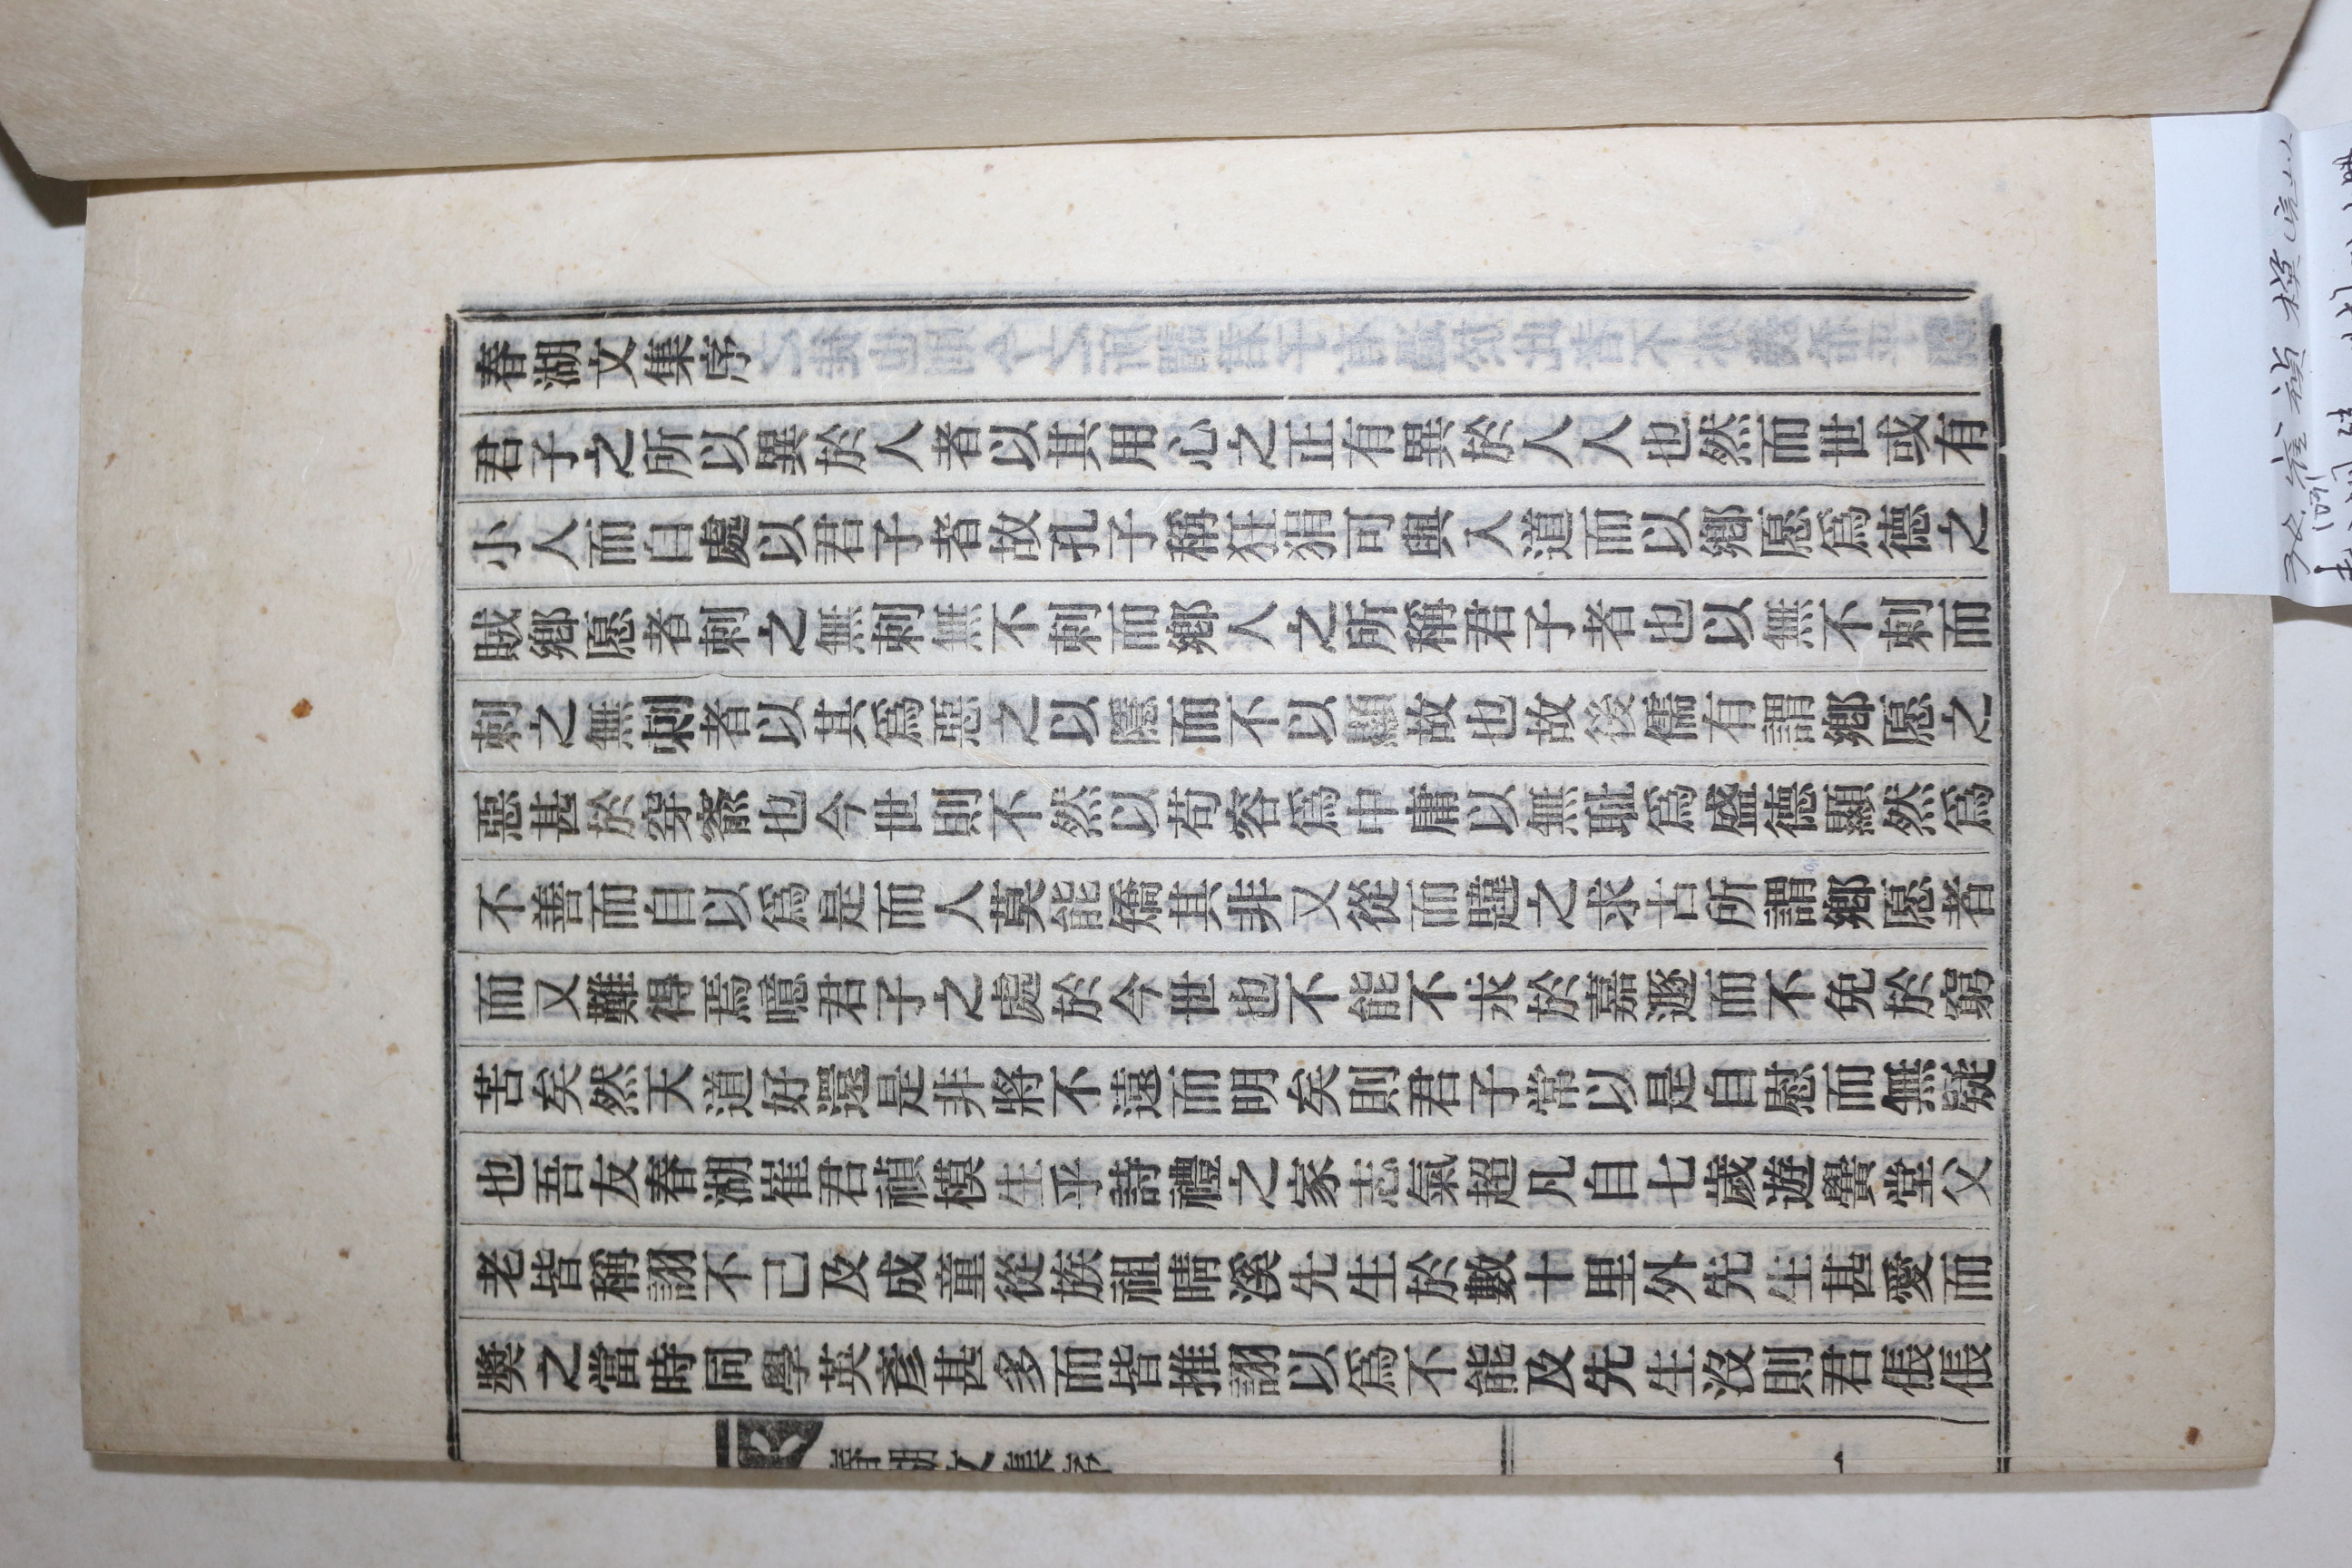 春湖文集序
君子之所以異於人者以其用心之正有異於人人也然而世或有
小人而自處以君子者故孔子稱狂狷可與入道而以鄕愿爲德之
賊鄕愿者刺之無刺無不刺而鄕人之所稱君子者也以無不刺而
刺之無刺者以其爲惡之以隱而不以顯故也故後儒有謂鄕愿之
惡甚於穿窬也今世則不然以苟容爲中庸以無耻爲盛德顯然爲
不善而自以爲是而人莫能矯其非又從而韙之求古所謂鄕愿者
而又難得焉噫君子之處於今世也不能不求於嘉遯而不免於窮
苦矣然天道好還是非將不遠而明矣則君子常以是自慰而無疑
也吾友春湖崔君禎模生乎詩禮之家志氣超凡自七歲遊黌堂父
老皆稱詡不己及成童從族祖晴溪先生於數十里外先生甚愛而
奬之當時同學英彥甚多而皆推詡以爲不能及先生沒則君倀倀
春湖文集序
一
崔禎模